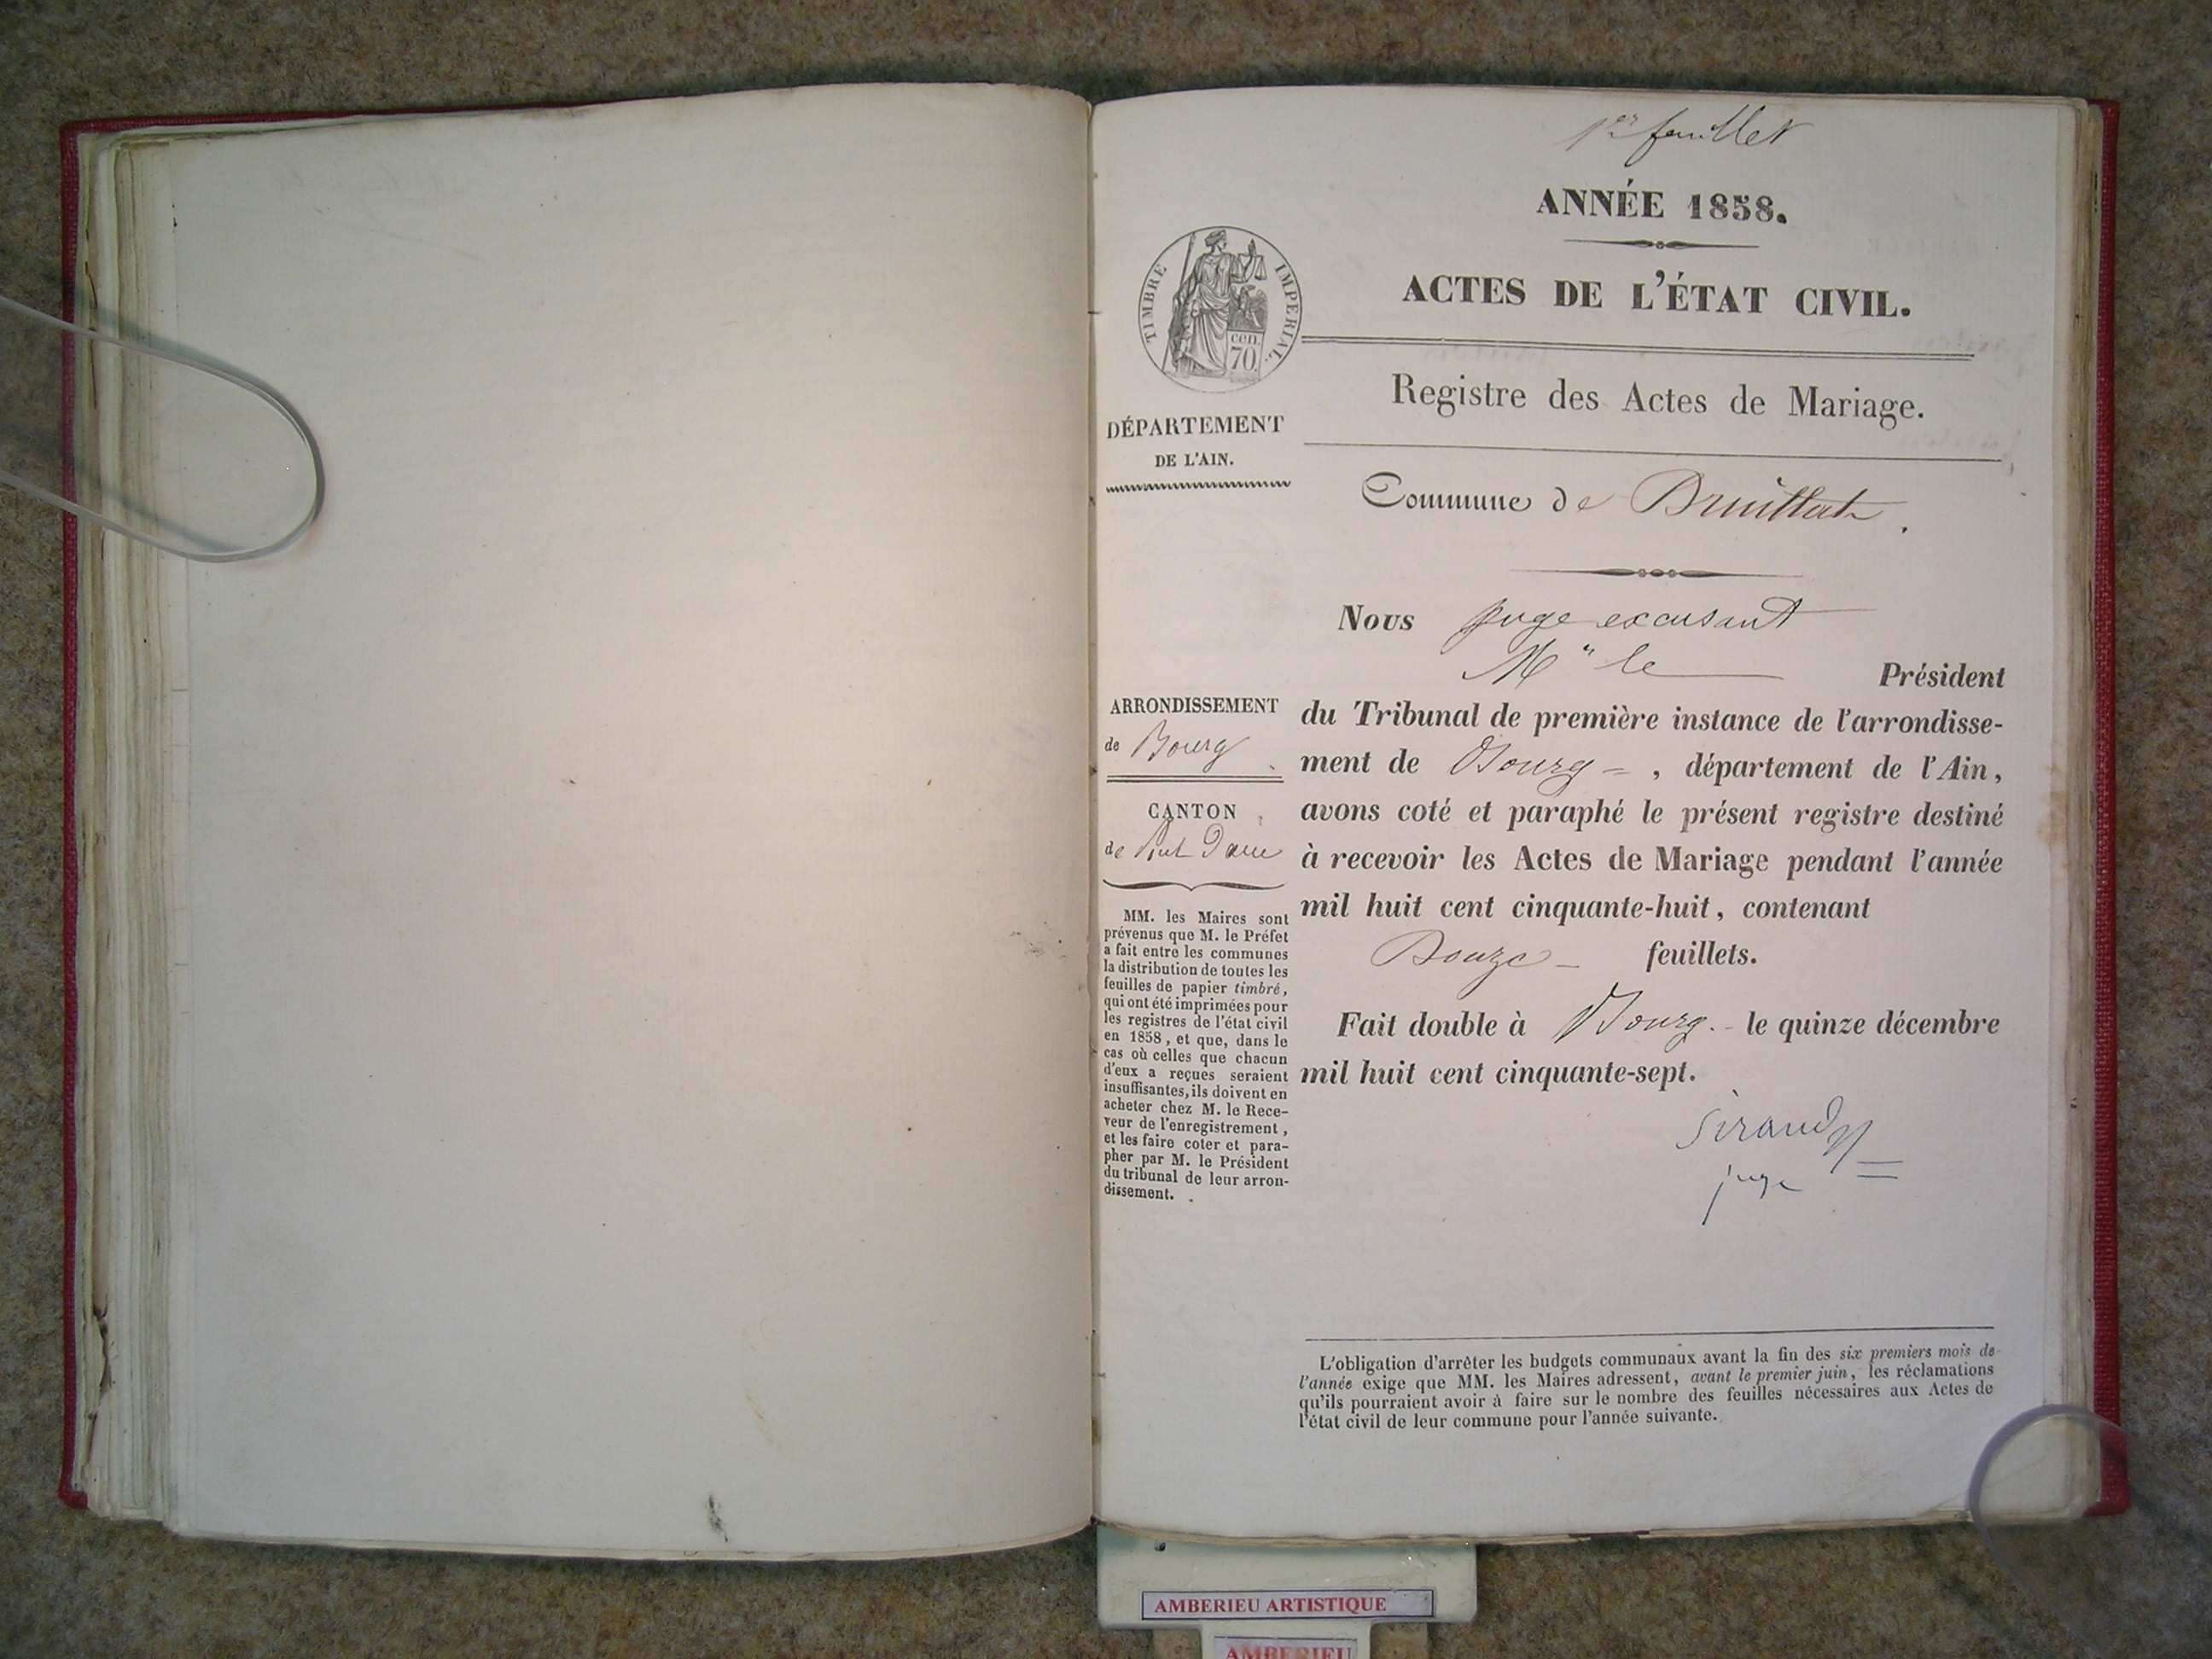 1er feuillet
ANNÉE 1858.
ACTES DE L'ÉTAT CIVIL.
TIMBRE IMPÉRIAL.
cen.
70.
Registre des Actes de Mariage.
DÉPARTEMENT
DE L'AIN.
Commune de Druillat.
Nous juge excusant
Mr le Président
du Tribunal de première instance de l'arrondisse-
ment de Bourg, département de l'Ain,
avons coté et paraphé le présent registre destiné
à recevoir les Actes de Mariage pendant l'année
mil huit cent cinquante-huit, contenant
Douze feuillets.
Fait double à Bourg. le quinze décembre
mil huit cent cinquante-sept.
Sirand
juge
ARRONDISSEMENT
de Bourg.
CANTON
de Pont Dain
MM. les Maires sont
prévenus que M. le Préfet
a fait entre les communes
la distribution de toutes les
feuilles de papier timbré,
qui ont été imprimées pour
les registres de l'état civil
en 1858, et que, dans le
cas où celles que chacun
d'eux a reçues seraient
insuffisantes, ils doivent en
acheter chez M. le Rece-
veur de l'enregistrement,
et les faire coter et para-
pher par M. le Président
du tribunal de leur arron-
dissement.
L'obligation d'arrêter les budgets communaux avant la fin des six premiers mois de
l'année exige que MM. les Maires adressent, avant le premier juin, les réclamations
qu'ils pourraient avoir à faire sur le nombre des feuilles nécessaires aux Actes de
l'état civil de leur commune pour l'année suivante.
AMBERIEU ARTISTIQUE
AMBERIEU